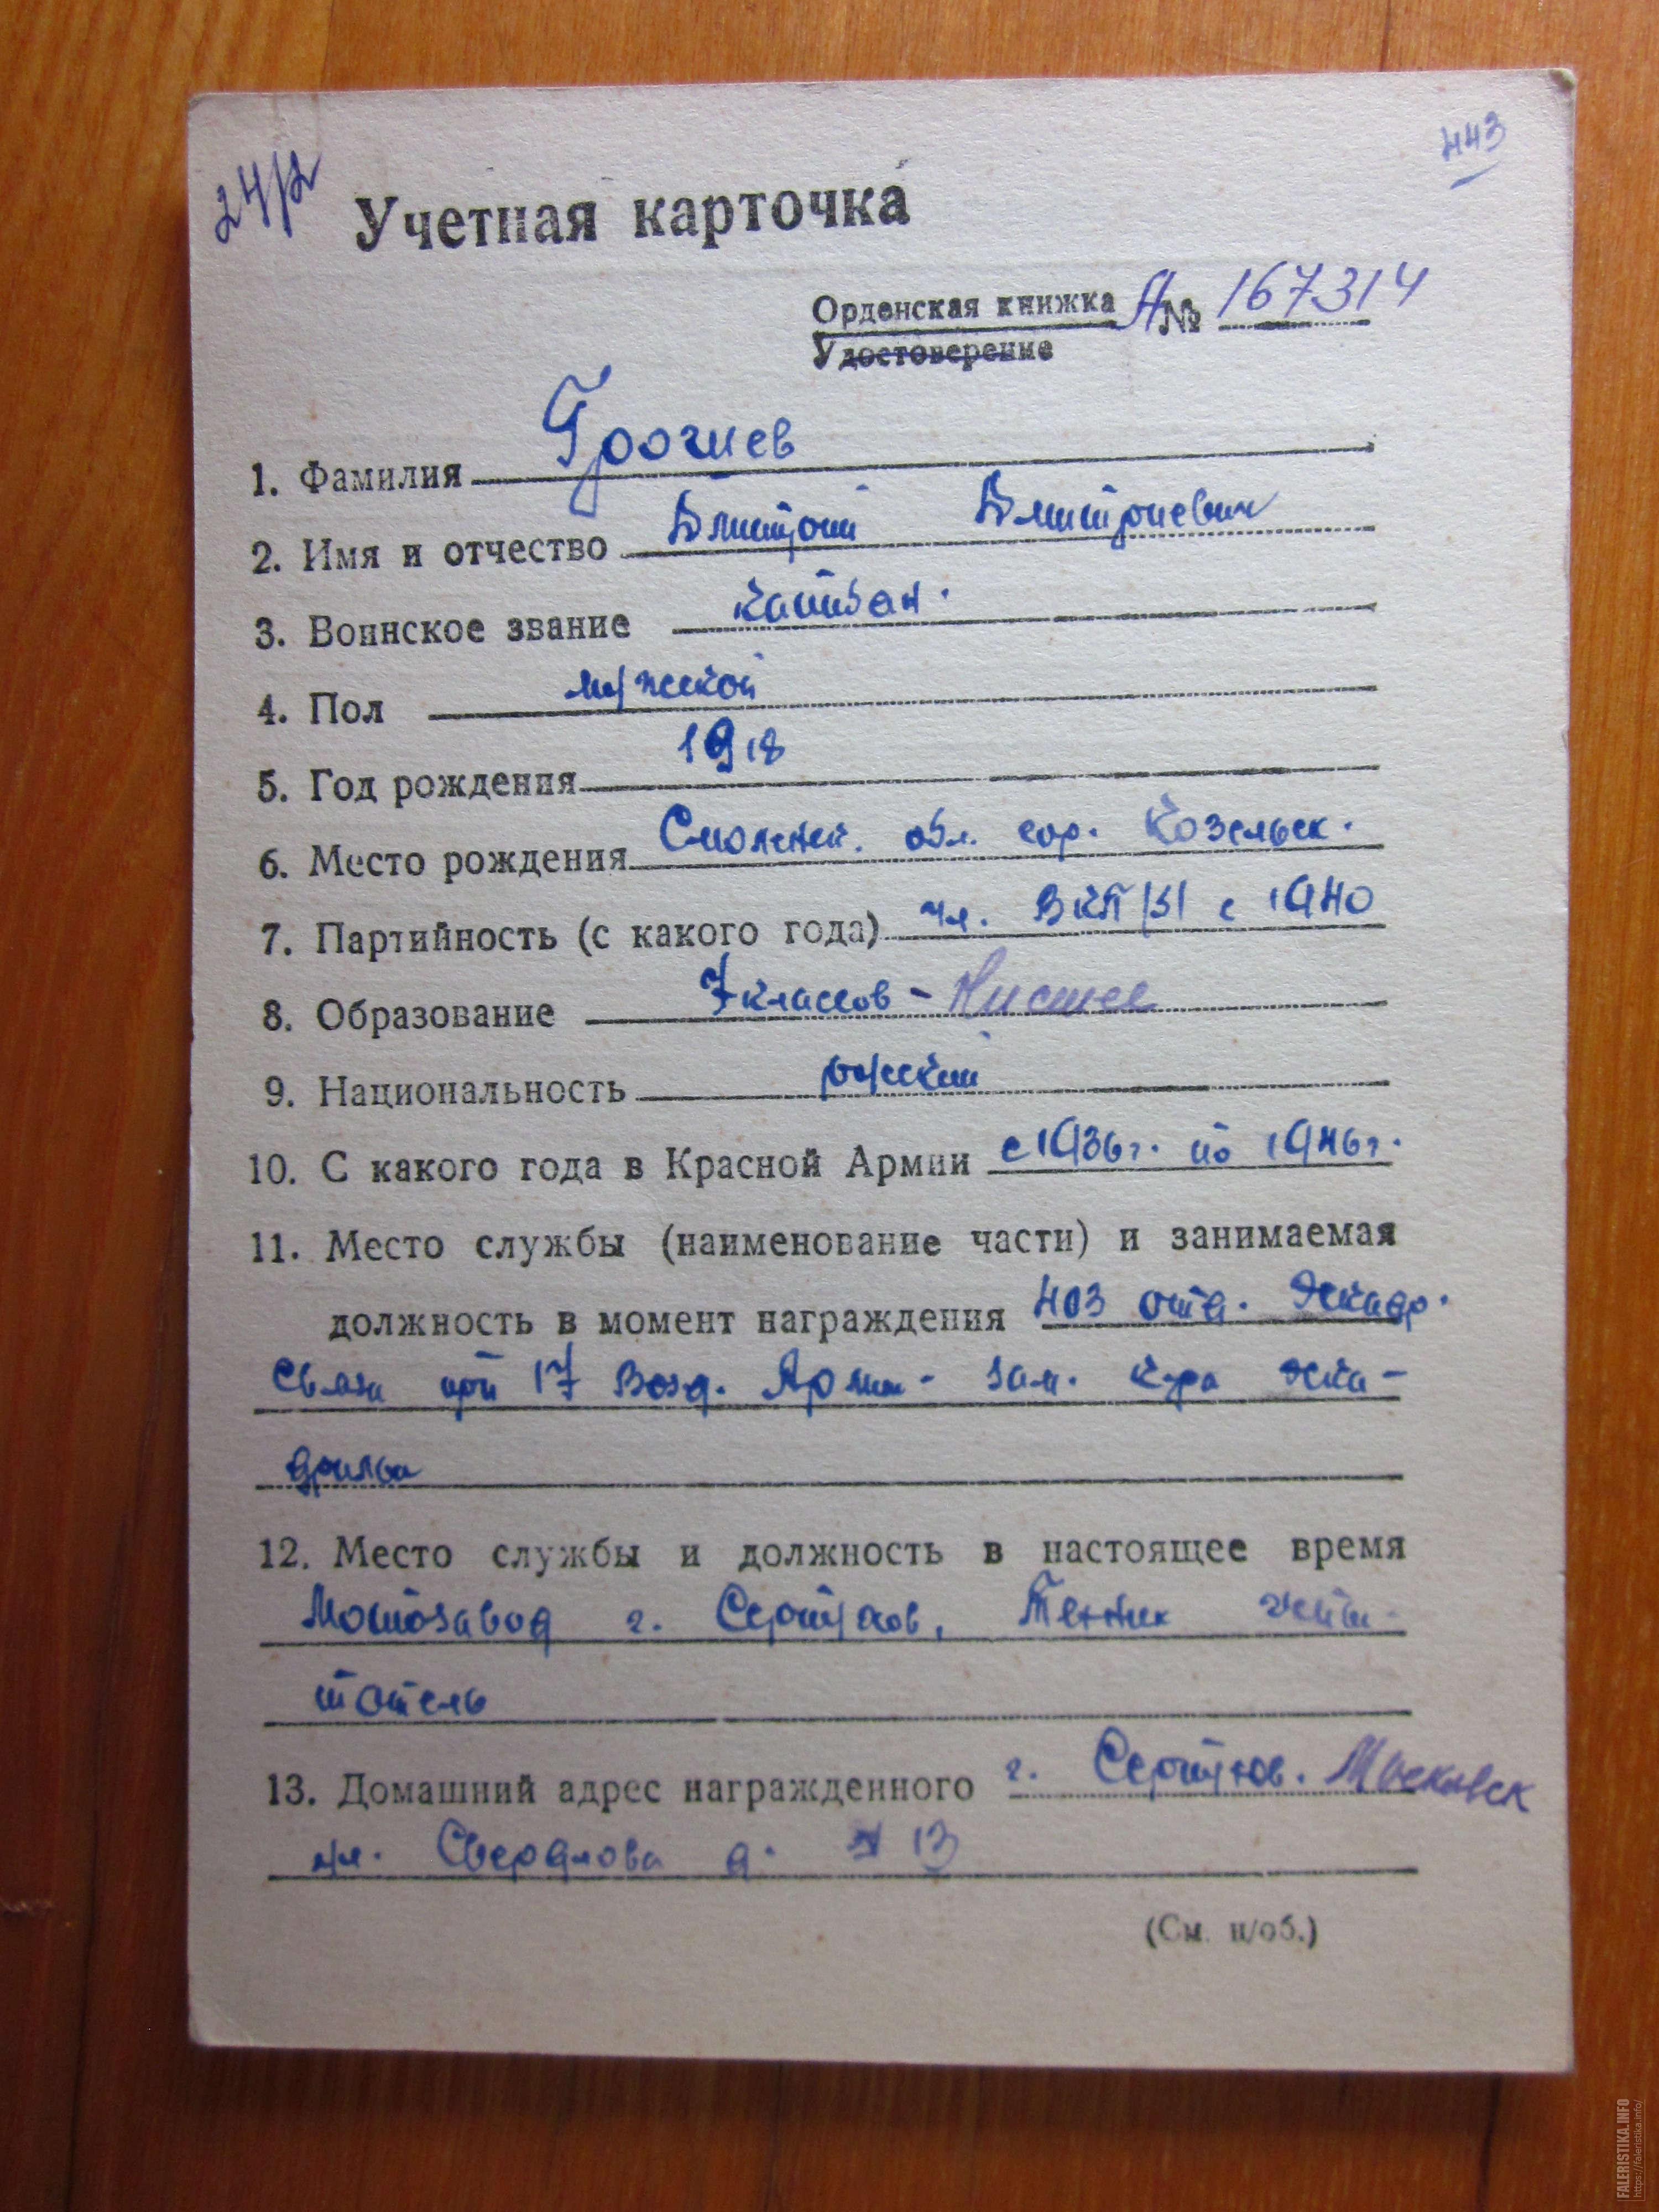 443
24/2
Учетная карточка
Орденская книжка А№ 167314
Удостоверение
1. Фамилия
2. Имя и отчество Дмитрий Дмитриевич
3. Воинское звание капитан.
4. Пол мужской
5. Год рождения 1918
6. Место рождения Смоленск. обл. гор. Козельск.
7. Партийность (с какого года) чл. ВКП/б/ с 1940
8. Образование 7 классов - Низшее
9. Национальность русский
10. С какого года в Красной Армии с 1936г. по 1946г.
11. Место службы (наименование части) и занимаемая
должность в момент награждения 403 отд. Эскадр.
Связи при 17 Возд. Армии - зам. к-ра эска-
дрильи
12. Место службы и должность в настоящее время
Мотозавод г. Серпухов, Техник испы-
татель
13. Домашний адрес награжденного г. Серпухов. Московск
ул. Свердлова д. № 13
(См. н/об.)
FALERISTIKA.INFO
https://faleristika.info/